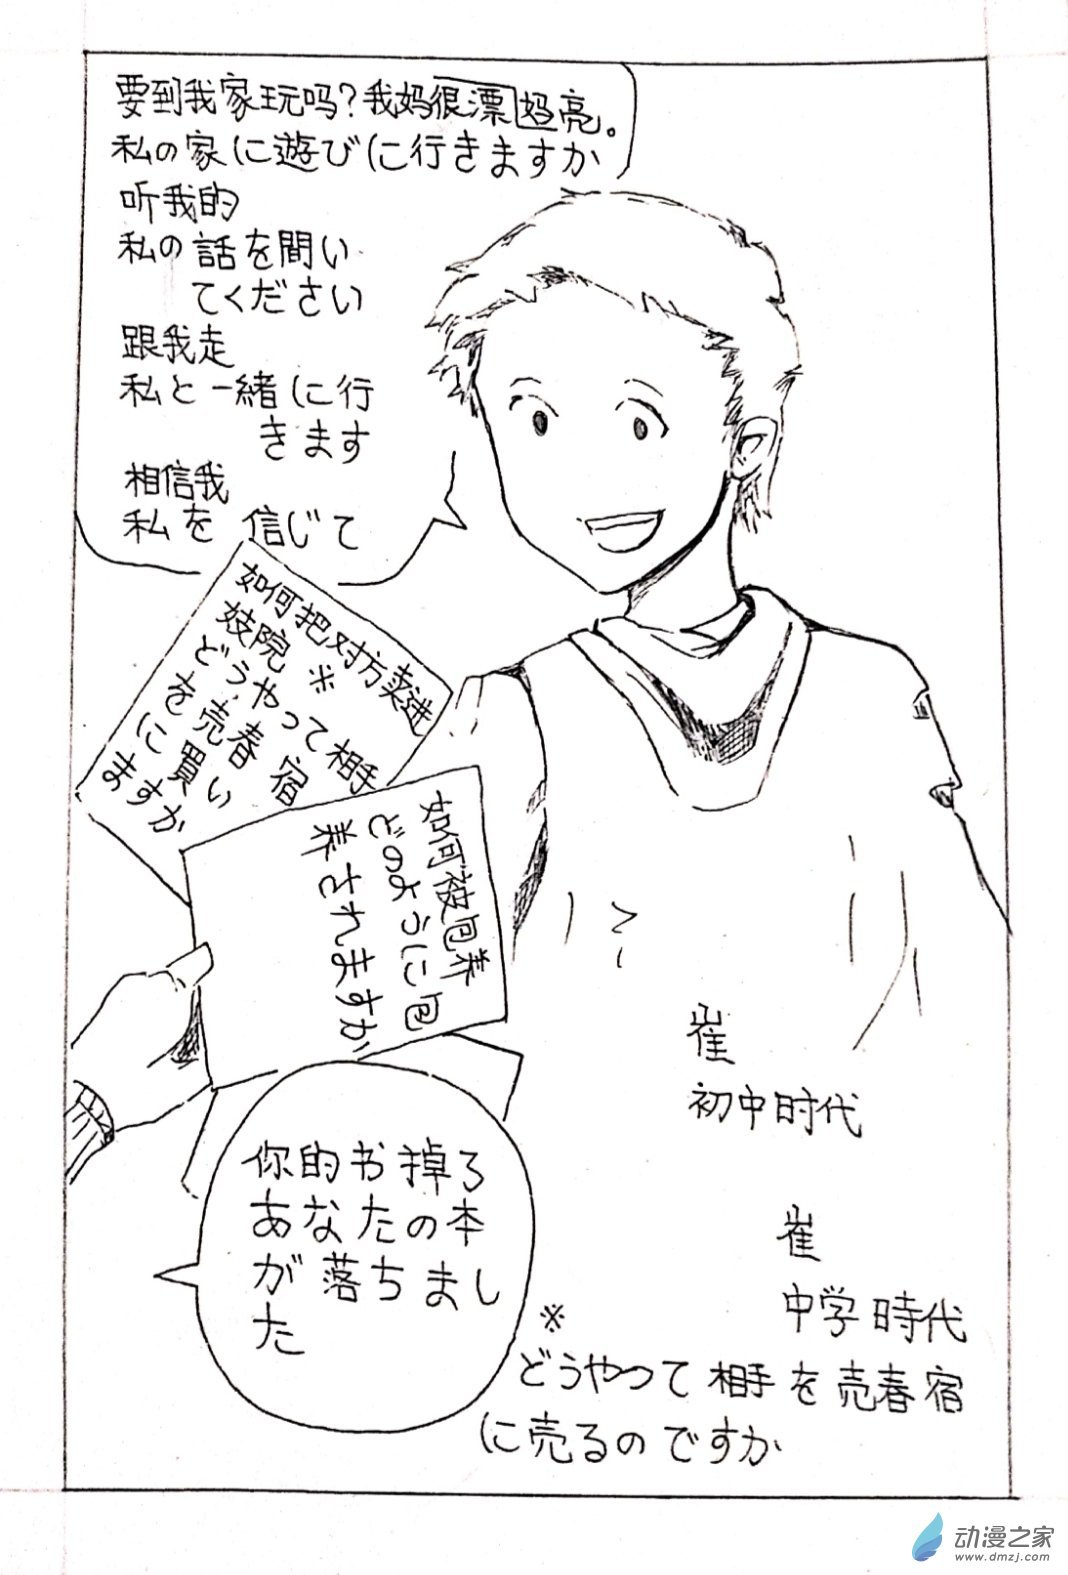 要到我家玩吗？我妈很漂妈亮。
私の家に遊びに行きますか
听我的
私の話を間い
てください
跟我走
私と一緒に行
きます
相信我
私を信じて
如何把对方卖进
妓院※
どうやって相手
を売春宿
に買い
ますか
如何被包养
どのように包
养されますか
你的书掉了
あなたの本
が落ちまし
た
崔
初中时代
崔
中学時代
※
どうやって相手を売春宿
に売るのですか
动漫之家
www.dmzj.com